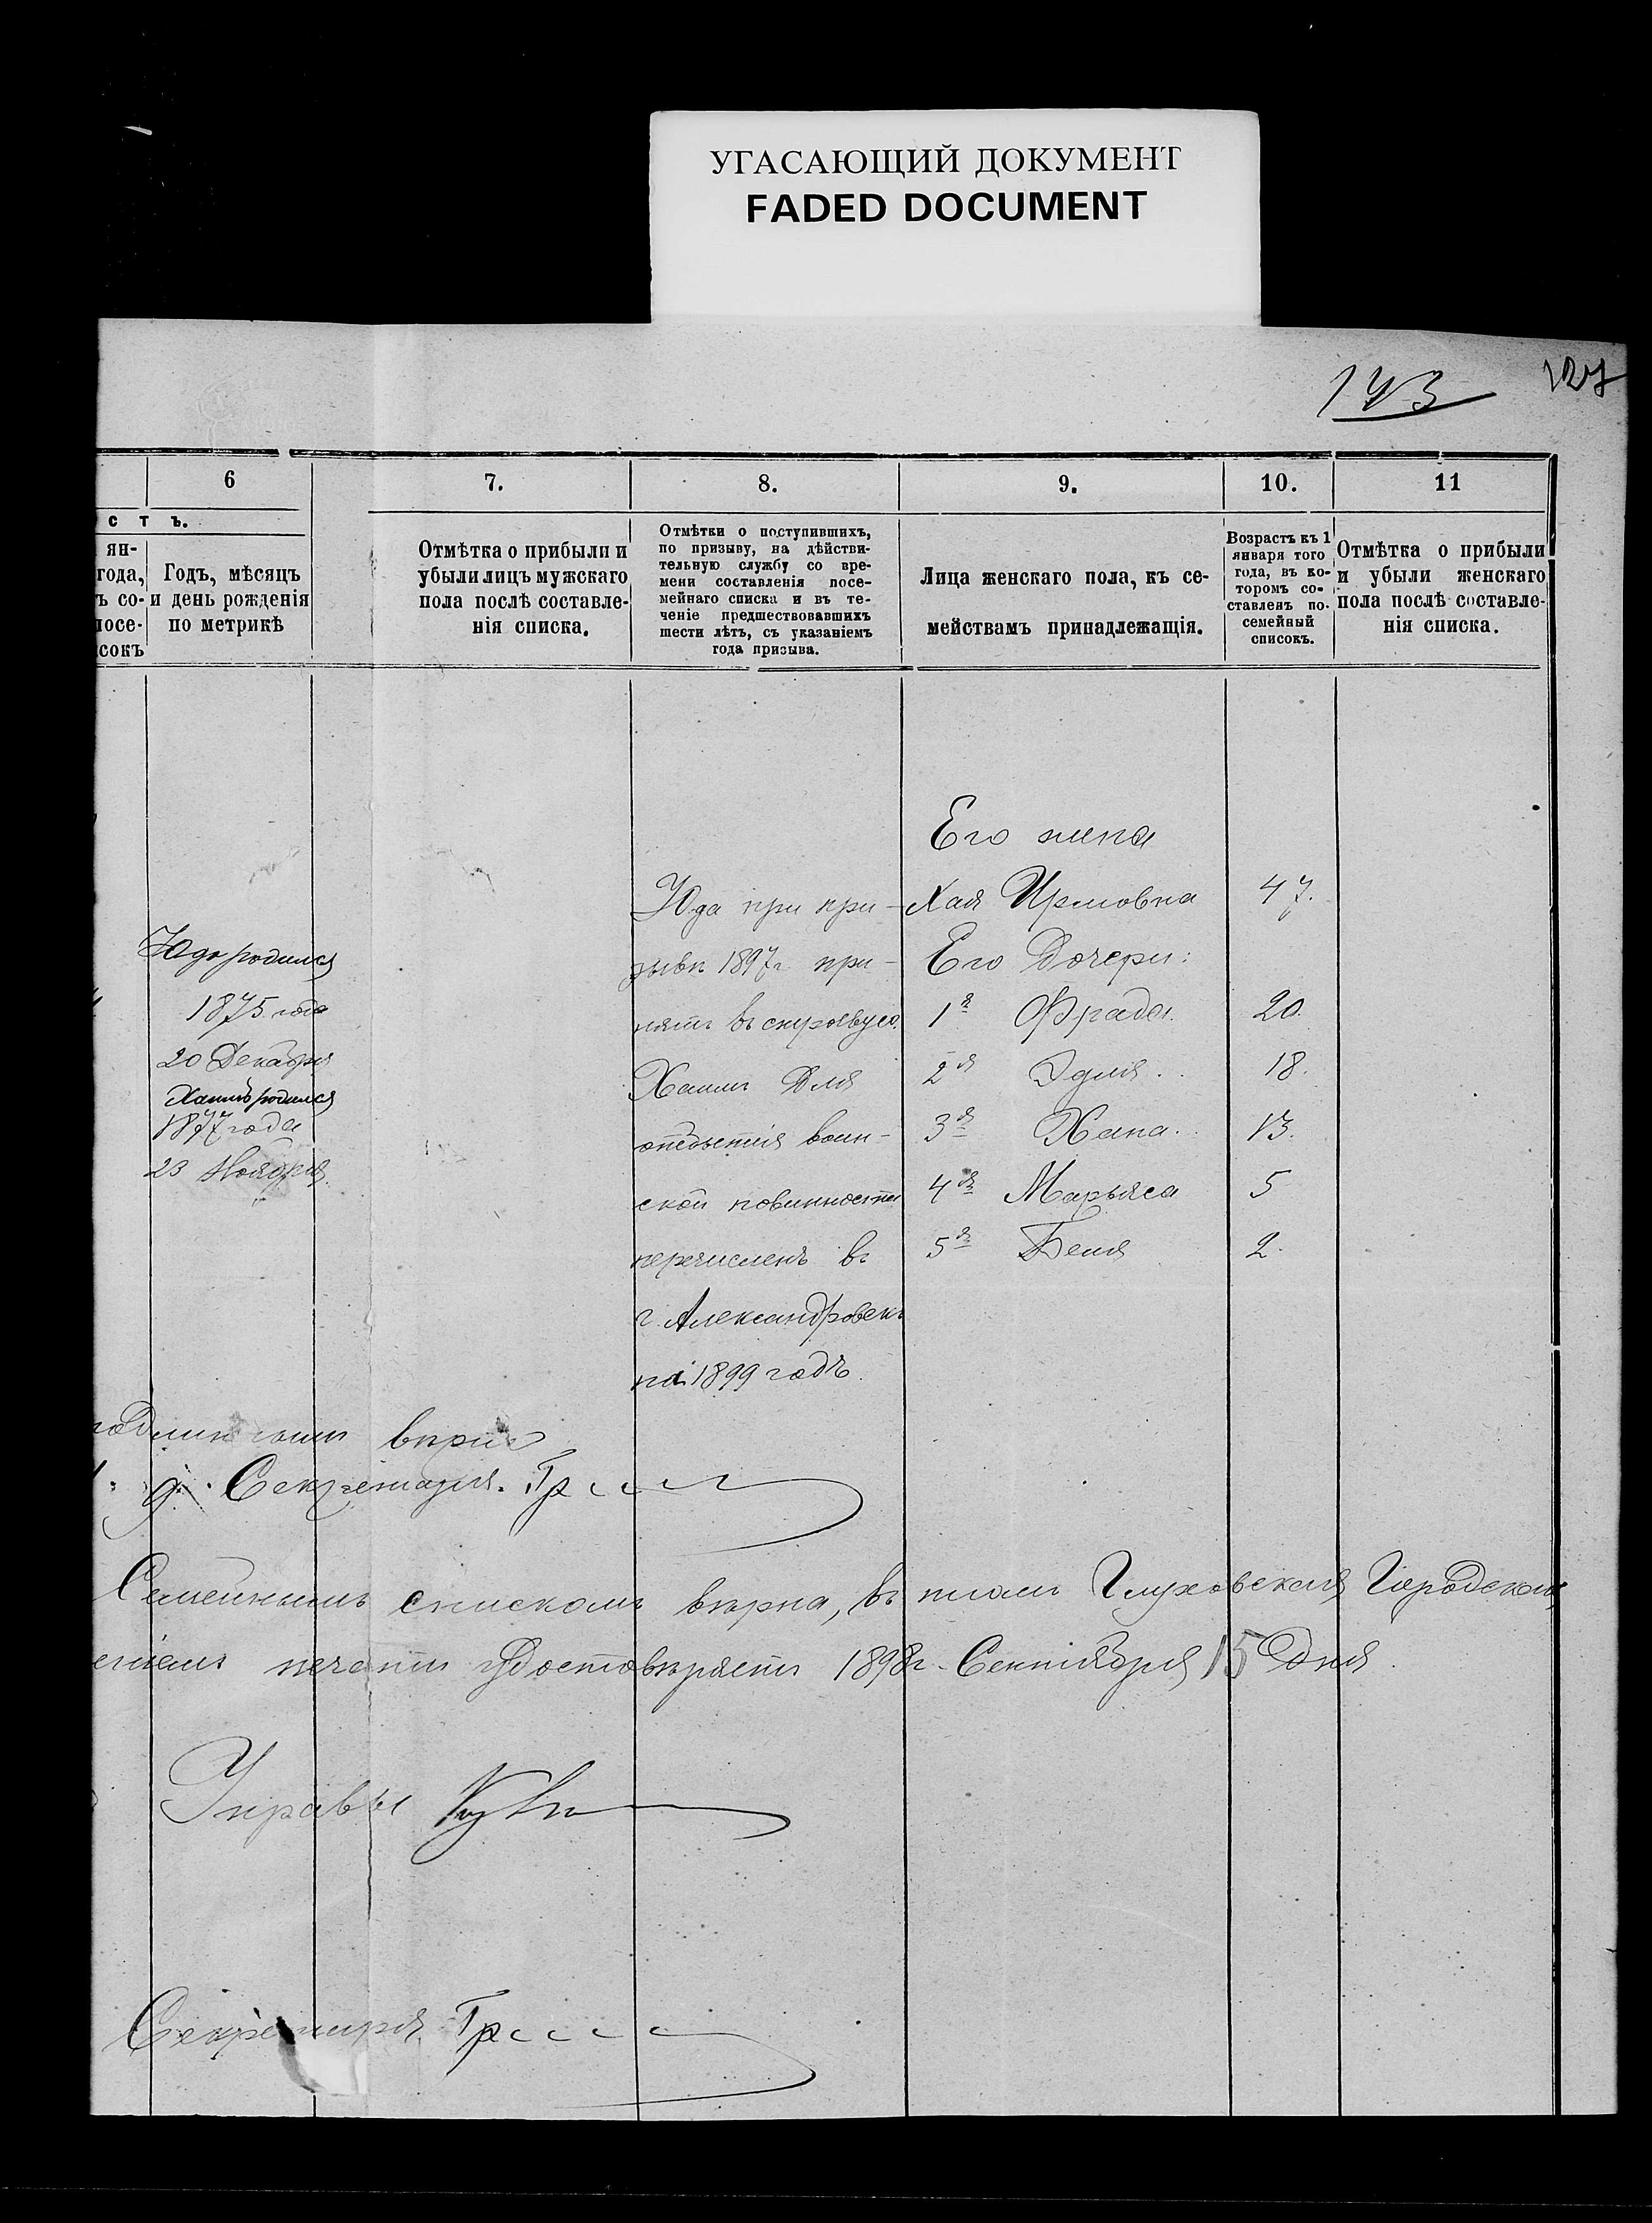 УГАСАЮЩИЙ ДОКУМЕНТ
FADED DOCUMENT
143
127
6
7.
8.
9.
10.
11
с т ъ.
ян-
года,
ъ со-
посе-
сокъ
Годъ, мѣсяцъ
и день рожденія
по метрикѣ
Отмѣтка о прибыли и
убыли лицъ мужскаго
пола послѣ составле-
нія списка.
Отмѣтки о поступившихъ,
по призыву, на дѣйстви-
тельную службу со вре-
мени составленія посе-
мейнаго списка и въ те-
ченіе предшествовавшихъ
шести лѣтъ, съ указаніемъ
года призыва.
Лица женскаго пола, къ се-
мействамъ принадлежащія.
Возрастъ къ 1
января того
года, въ ко-
торомъ со-
ставленъ по-
семейный
списокъ.
Отмѣтка о прибыли
и убыли женскаго
пола послѣ составле-
нія списка.
Юда родился
1875 года
20 Декабря
Хаимъ родился
1877 года
23 Ноября.
Юда при при-
зывѣ 1897г при-
нятъ въ строевую.
Хаимъ для
отбытія воин-
ской повинности
перечисленъ въ
г. Александровскъ
на 1899 годъ.
Его жена
Хая 47.
Его Дочери:
1я Фрада. 20.
2я Эдля. 18.
3я Хана. 13.
4я Марьяса 5
5я Беля 2.
вѣрно
д. Секретаря.
Семейнымъ спискомъ вѣрна, въ томъ Глуховская Городская
печати удостовѣряетъ 1898г. Сентября 15 Дня.
Управы
Секретаря